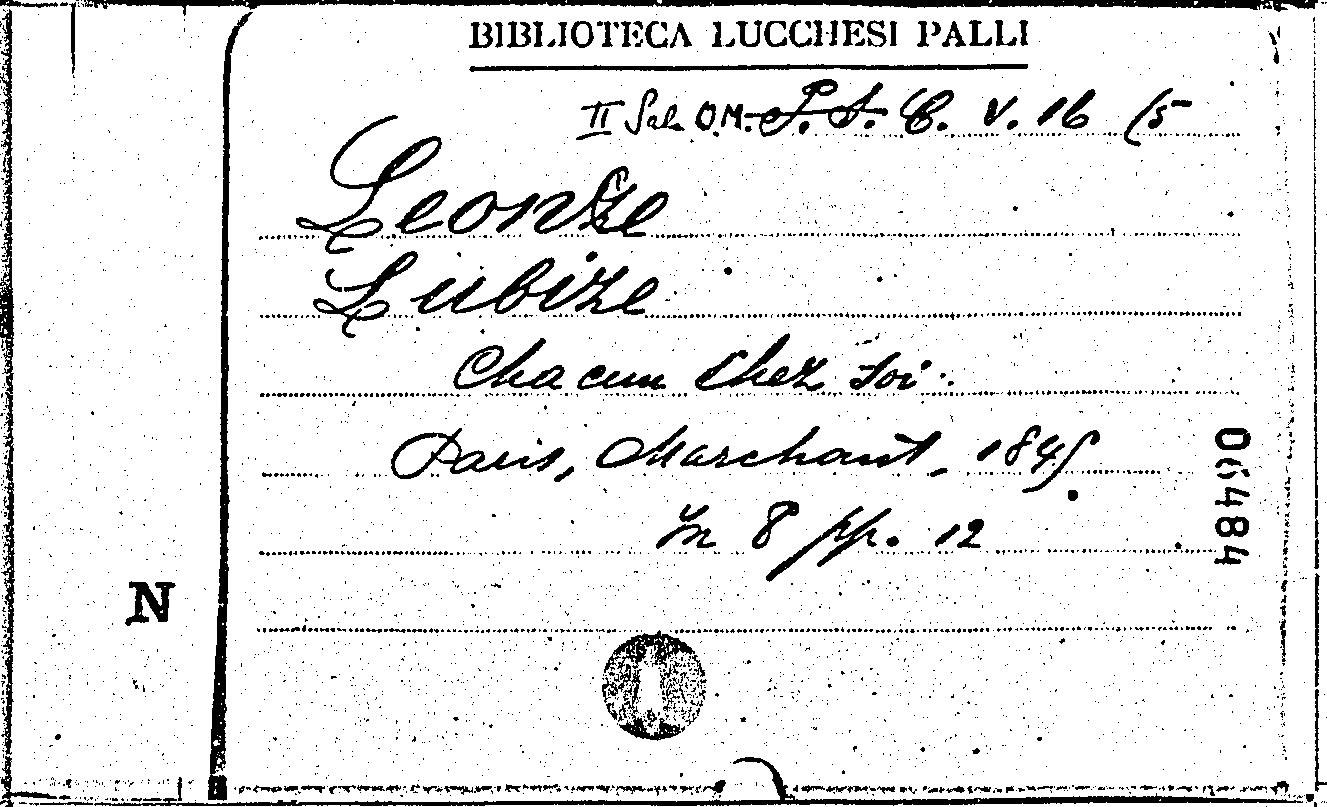 BIBLIOTECA LUCCHESI PALLI
II Sal. O.M. P. S. C. V. 16 (5
Leonze
Lubize
Chacun chez soi.
Paris, Marchant, 1845
In 8 pp. 12
06484
N